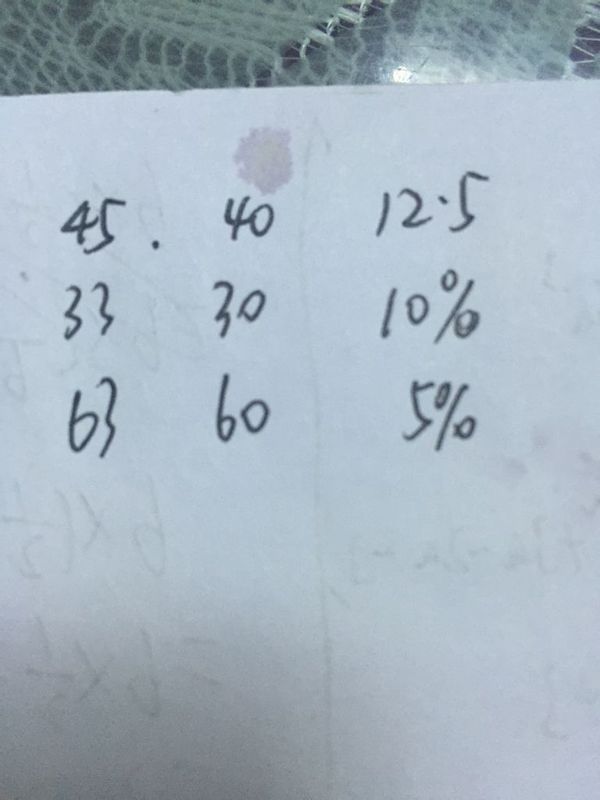 45. 40 12.5
33 30 10%
63 60 5%